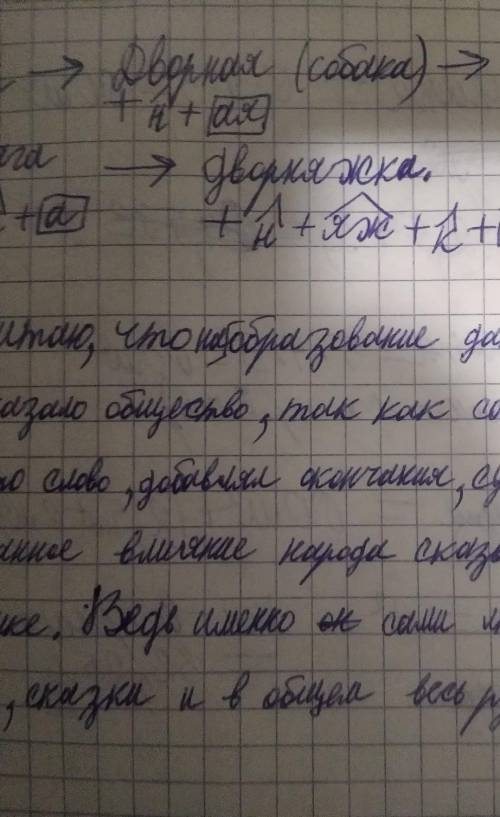 → Дворная (собака) →
+ н + ая
ага → дворняжка.
+ а + н + яж + к +
итаю, что на образование да
казало общество, так как со
о слово, добавлял окончания, су
анное влияние народа сказы
ке. Ведь именно он сами
, сказки и в общем весь р